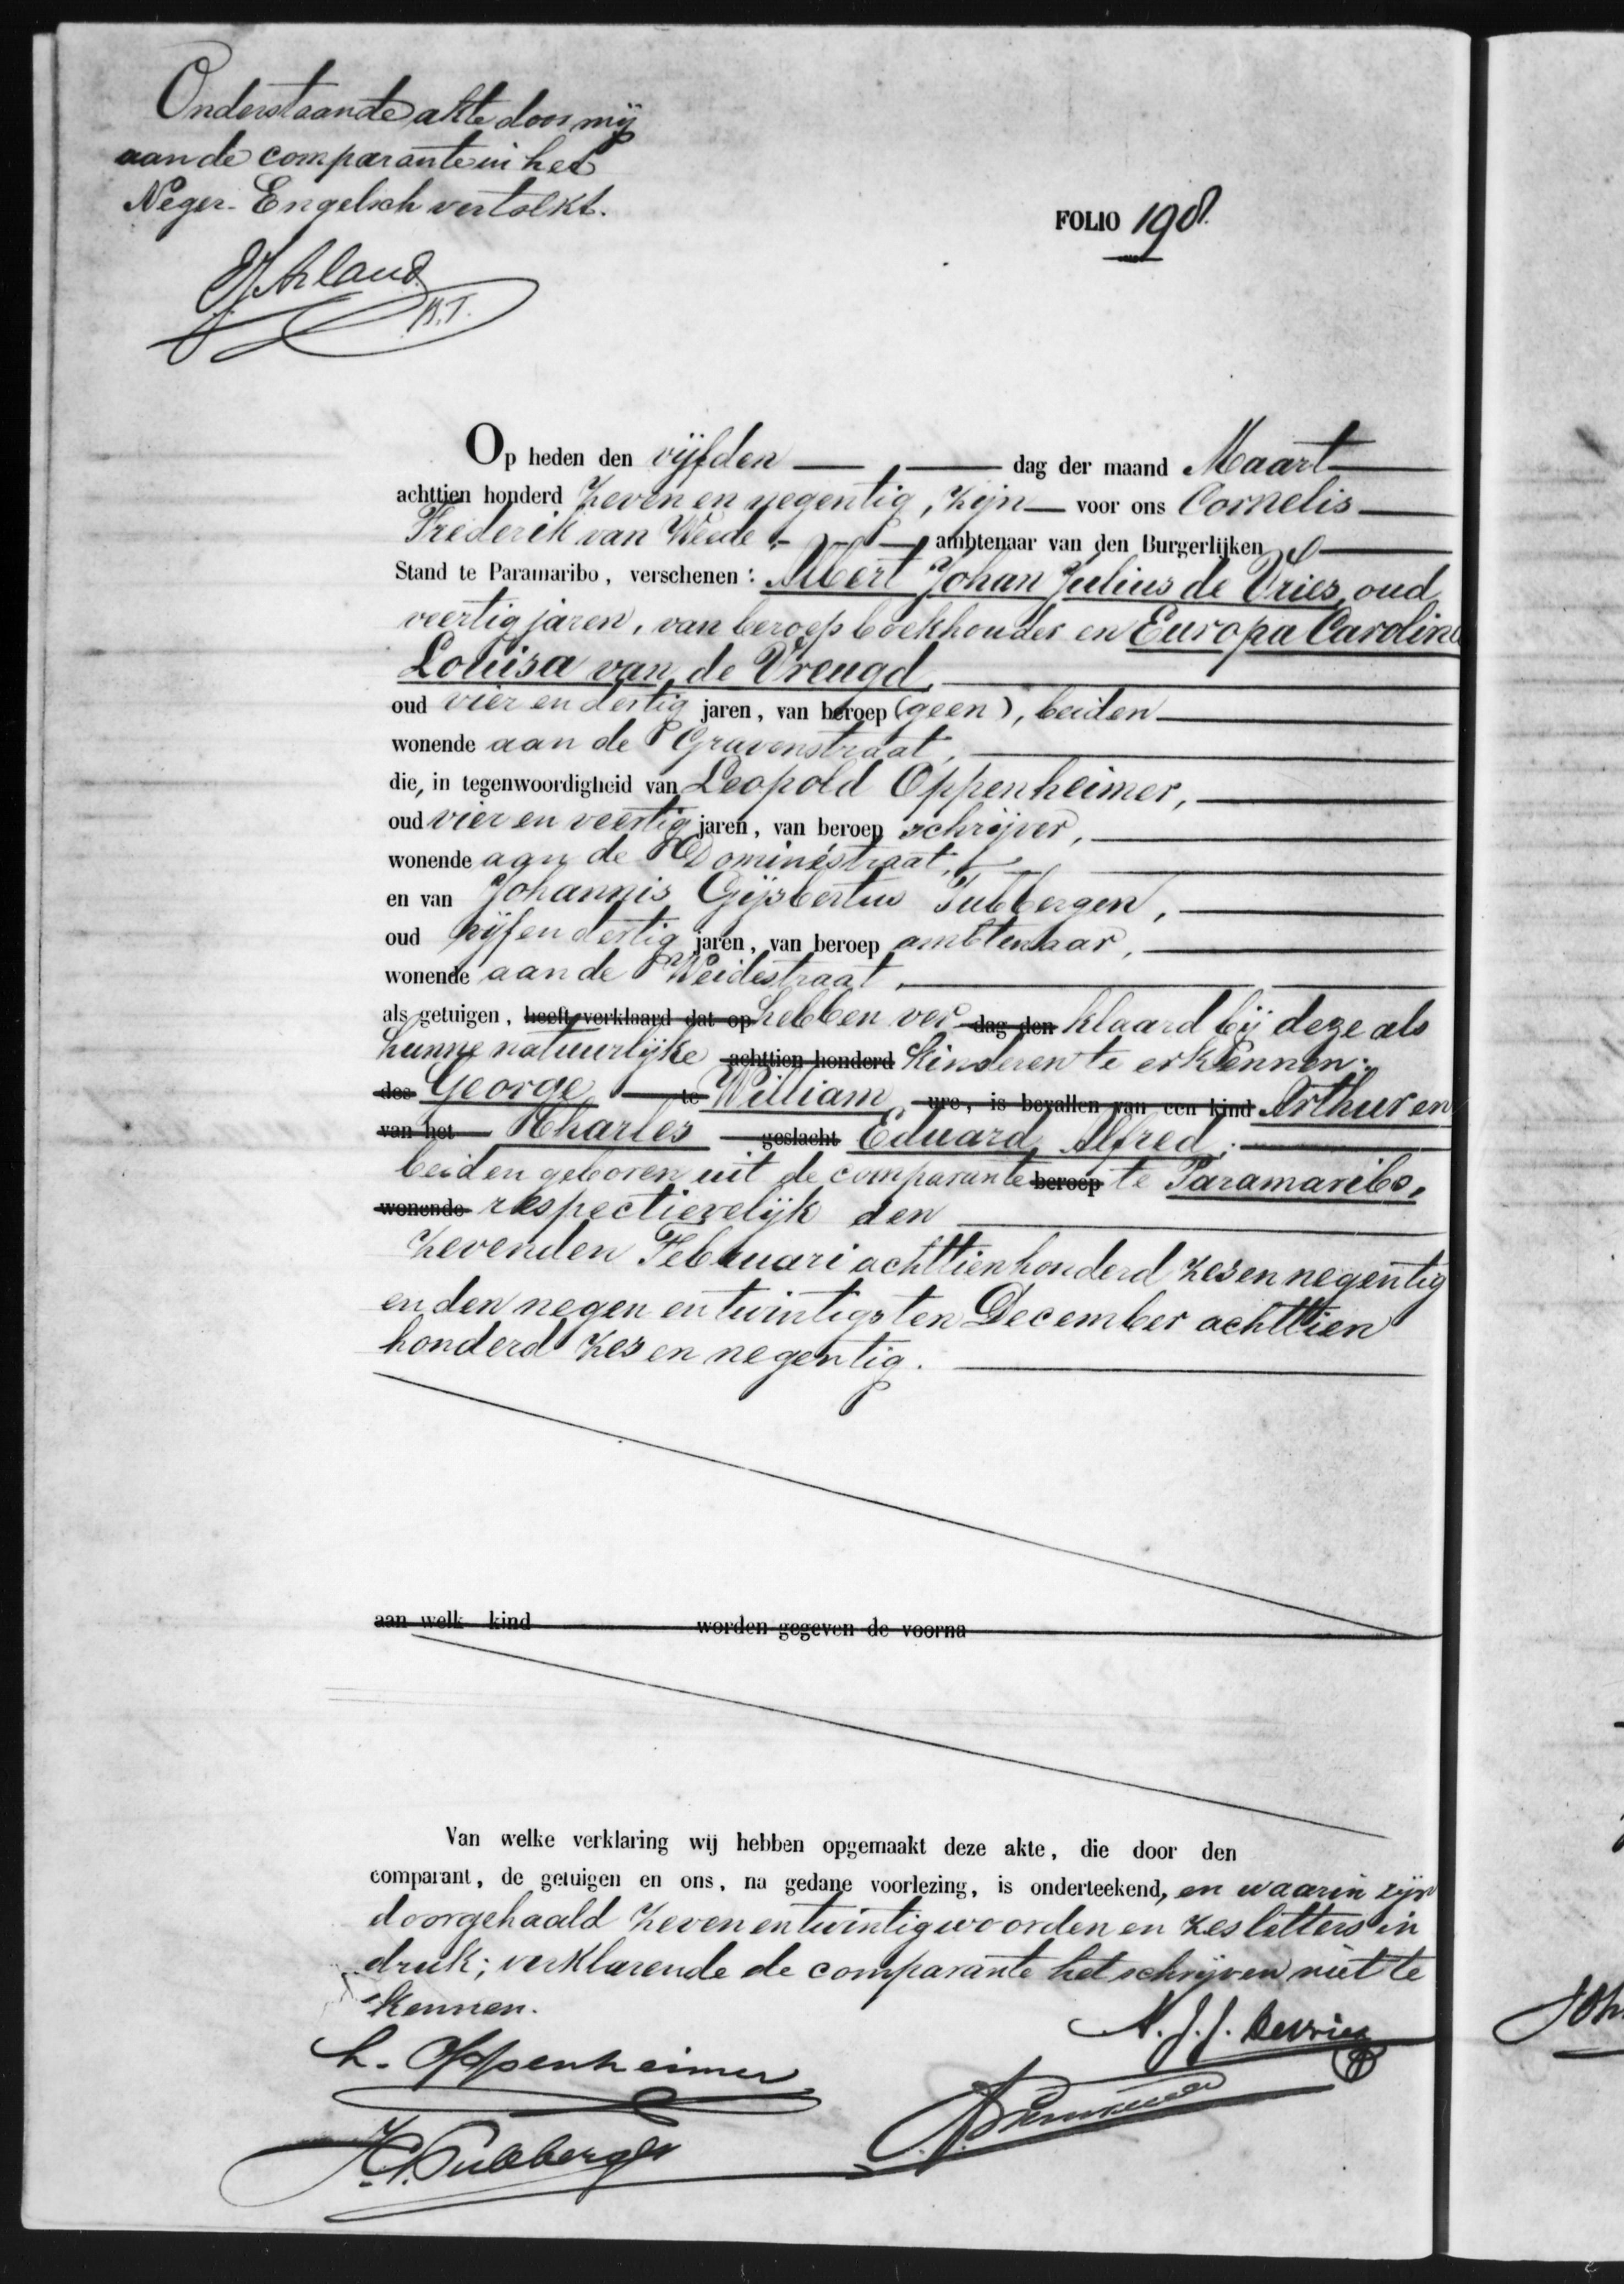 Onderstaande akte door mij
aan de comparante in het
Neger-Engelsch vertolkt.
B.T.
FOLIO 198.
Op heden den vijfden dag der maand Maart
achttien honderd zeven en negentig, zijn voor ons Cornelis
Frederik van Weede, ambtenaar van den Burgerlijken
Stand te Paramaribo, verschenen: Albert Johan Julius de Vries, oud
veertig jaren, van beroep boekhouder en Europa Carolina
Louisa van de Vreugd,
oud vier en dertig jaren, van beroep (geen), beiden
wonende aan de Gravenstraat,
die, in tegenwoordigheid van Leopold Oppenheimer,
oud vier en veertig jaren, van beroep schrijver,
wonende aan de Dominéstraat,
en van Johannis Gijsbertus Tubbergen,
oud vijf en dertig jaren, van beroep ambtenaar,
wonende aan de Weidestraat,
als getuigen, heeft verklaard dat op hebben ver dag den klaard bij deze als
hunne natuurlijke achttien honderd kinderen te erkennen:
des George te William ure, is bevallen van een kind Arthur en
van het Charles geslacht Eduard Alfred;
beiden geboren uit de comparante beroep te Paramaribo,
wonende respectievelijk den
zevenden Februari achttienhonderd zes en negentig
en den negen en twintigsten December achttien
honderd zes en negentig.
aan welk kind worden gegeven de voorna
Van welke verklaring wij hebben opgemaakt deze akte, die door den
comparant, de getuigen en ons, na gedane voorlezing, is onderteekend, en waarin zijn
doorgehaald zeven en twintig woorden en zes letters in
druk; verklarende de comparante het schrijven niet te
kennen.
A. J. J. de Vries
L. Oppenheimer
Tubbergen